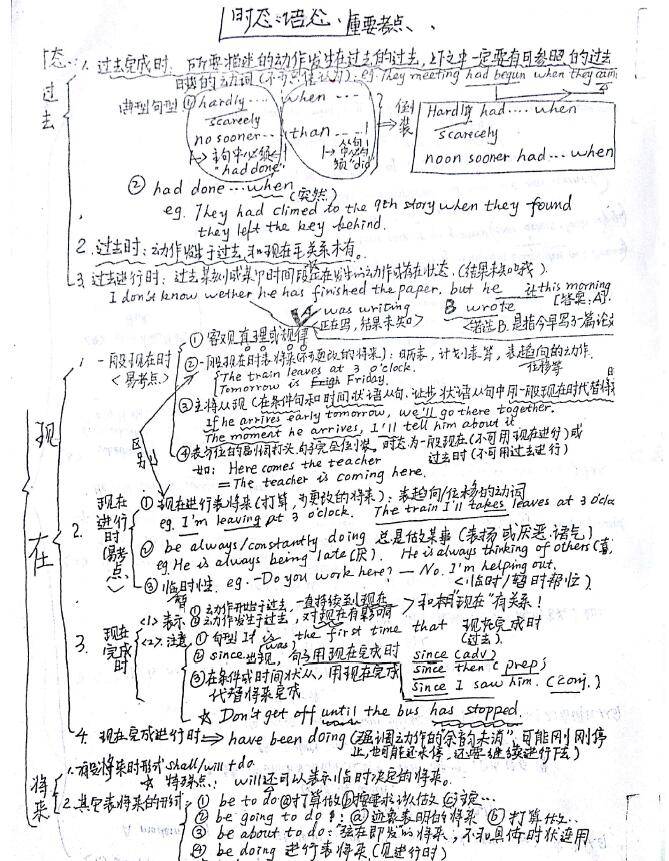 时态·语态 重要考点、
态:
过去
1. 过去完成时: 所要描述的动作发生在过去的过去, 上下文中一定要有日参照的过去
的动词 eg. They meeting had begun when they came
典型句型 ① hardly .... when ....
scarcely
no sooner... than .... !
主句中必须 "had done"
从句中必须 "did"
倒装
Hardly had .... when
scarcely
noon sooner had ... when
② had done ... when
(突然)
eg. They had climed to the 9th story when they found
they left the key behind.
2. 过去时: 动作发生于过去, 和现在毛关系木有。
3. 过去进行时: 过去某刻或某个时间段正在发生的动作或存在状态. (结果未知哦).
I don't know wether he has finished the paper, but he __ it this morning
A was writing B wrote [答案: A].
<正在写, 结果未知> <若选B, 是指今早写了一篇论文
现在
1. 一般现在时
<易考点>
① 客观真理或规律
② 一般现在时表将来(不可更改的将来): 日历表, 计划表等, 表趋向的动作.
位移等
The train leaves at 3 o'clock.
Tomorrow is Friday.
区别
③ 主将从现 (在条件句和时间状语从句、让步状语从句中用一般现在时代替将来
If he arrives early tomorrow, we'll go there together.
The moment he arrives, I'll tell him about it
④ 表方位的副词打头, 句子完全倒装. 时态为一般现在 (不可用现在进行) 或
过去时 (不可用过去进行)
如: Here comes the teacher
= The teacher is coming here.
2. 现在进行时
(易考点)
① 现在进行表将来 (打算, 可更改的将来): 表趋向/位移的动词
eg. I'm leaving at 3 o'clock. The train I'll takes leaves at 3 o'clo
② be always/constantly doing 总是做某事 (表扬或厌恶·语气)
eg He is always being late (厌). He is always thinking of others (喜)
③ 临时性. eg. —Do you work here? — No. I'm helping out.
<临时/暂时帮忙>
3. 现在完成时
<1> 表示 ① 动作开始于过去, 一直持续到现在
② 动作发生于过去, 对现在有影响 > 和"现在"有关系!
<2> 注意
① 句型 If is the first time that 现在完成时
(was) (过去).
② since出现, 句子用现在完成时 since (adv)
since then (prep)
since I saw him. (conj.)
③ 在条件或时间状从, 用现在完成
代替将来完成
☆ Don't get off until the bus has stopped.
4. 现在完成进行时 ⇒ have been doing (强调动作的"余韵未消", 可能刚刚停
止, 也可能还未停, 还要继续进行下去)
将来
1. 将来时形式 shall/will + do
☆ 特殊点: will还可以表示临时决定的将来。
2. 其它表将来的形式:
① be to do ⓐ打算做 ⓑ按要求该做
② be going to do : ⓐ 迹象表明的将来 ⓑ 打算做..
③ be about to do: "弦在即发"的将来, 不和具体时状连用
④ be doing 进行表将来 (见进行时)